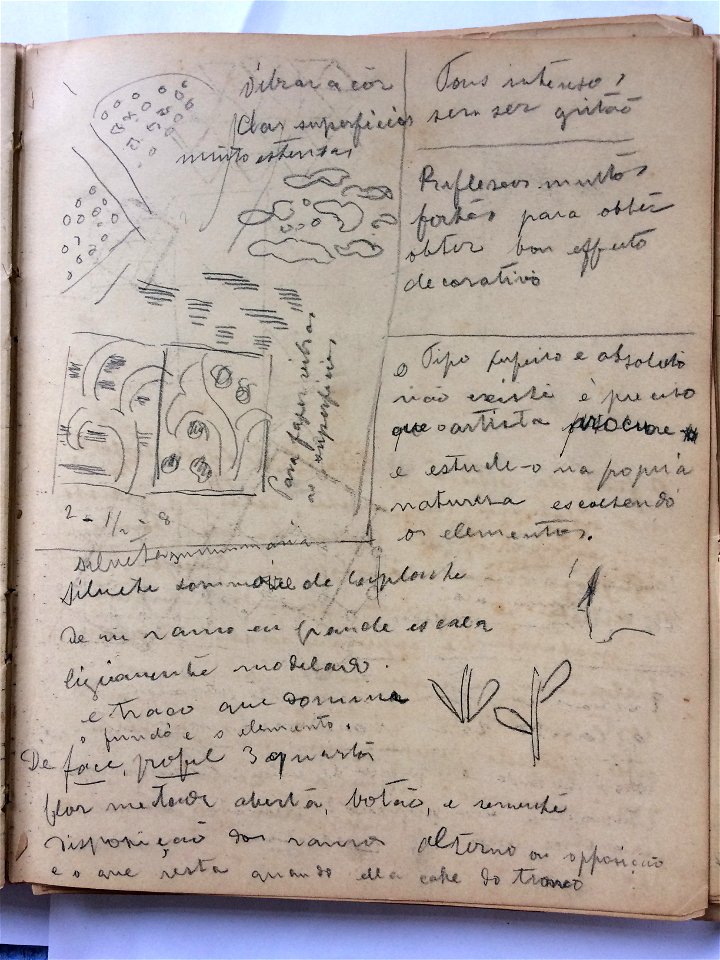 Vibrar a côr
das superficies
muito estensas
Tons intenso,
sem ser gritão
Reflexos muitos
fortes para obter
obter bon effeito
decorativo
Para fazer vibrar
as superficies
o Tipo e absoluto
não existe é preciso
que o artista procure
e estude-o na propria
natureza escolhendo
os elementos.
2 - 1/2 - 8
silueta
Siluete de
De um ramo em grande escala
ligeiramente modelado.
e traço que domina
o fundo e s elemento.
De face, profil 3 quartos
flor metade aberta, botão, e semente
Disposição dos ramos alterno ou opposição
e o que resta quando ella cahe do tronco